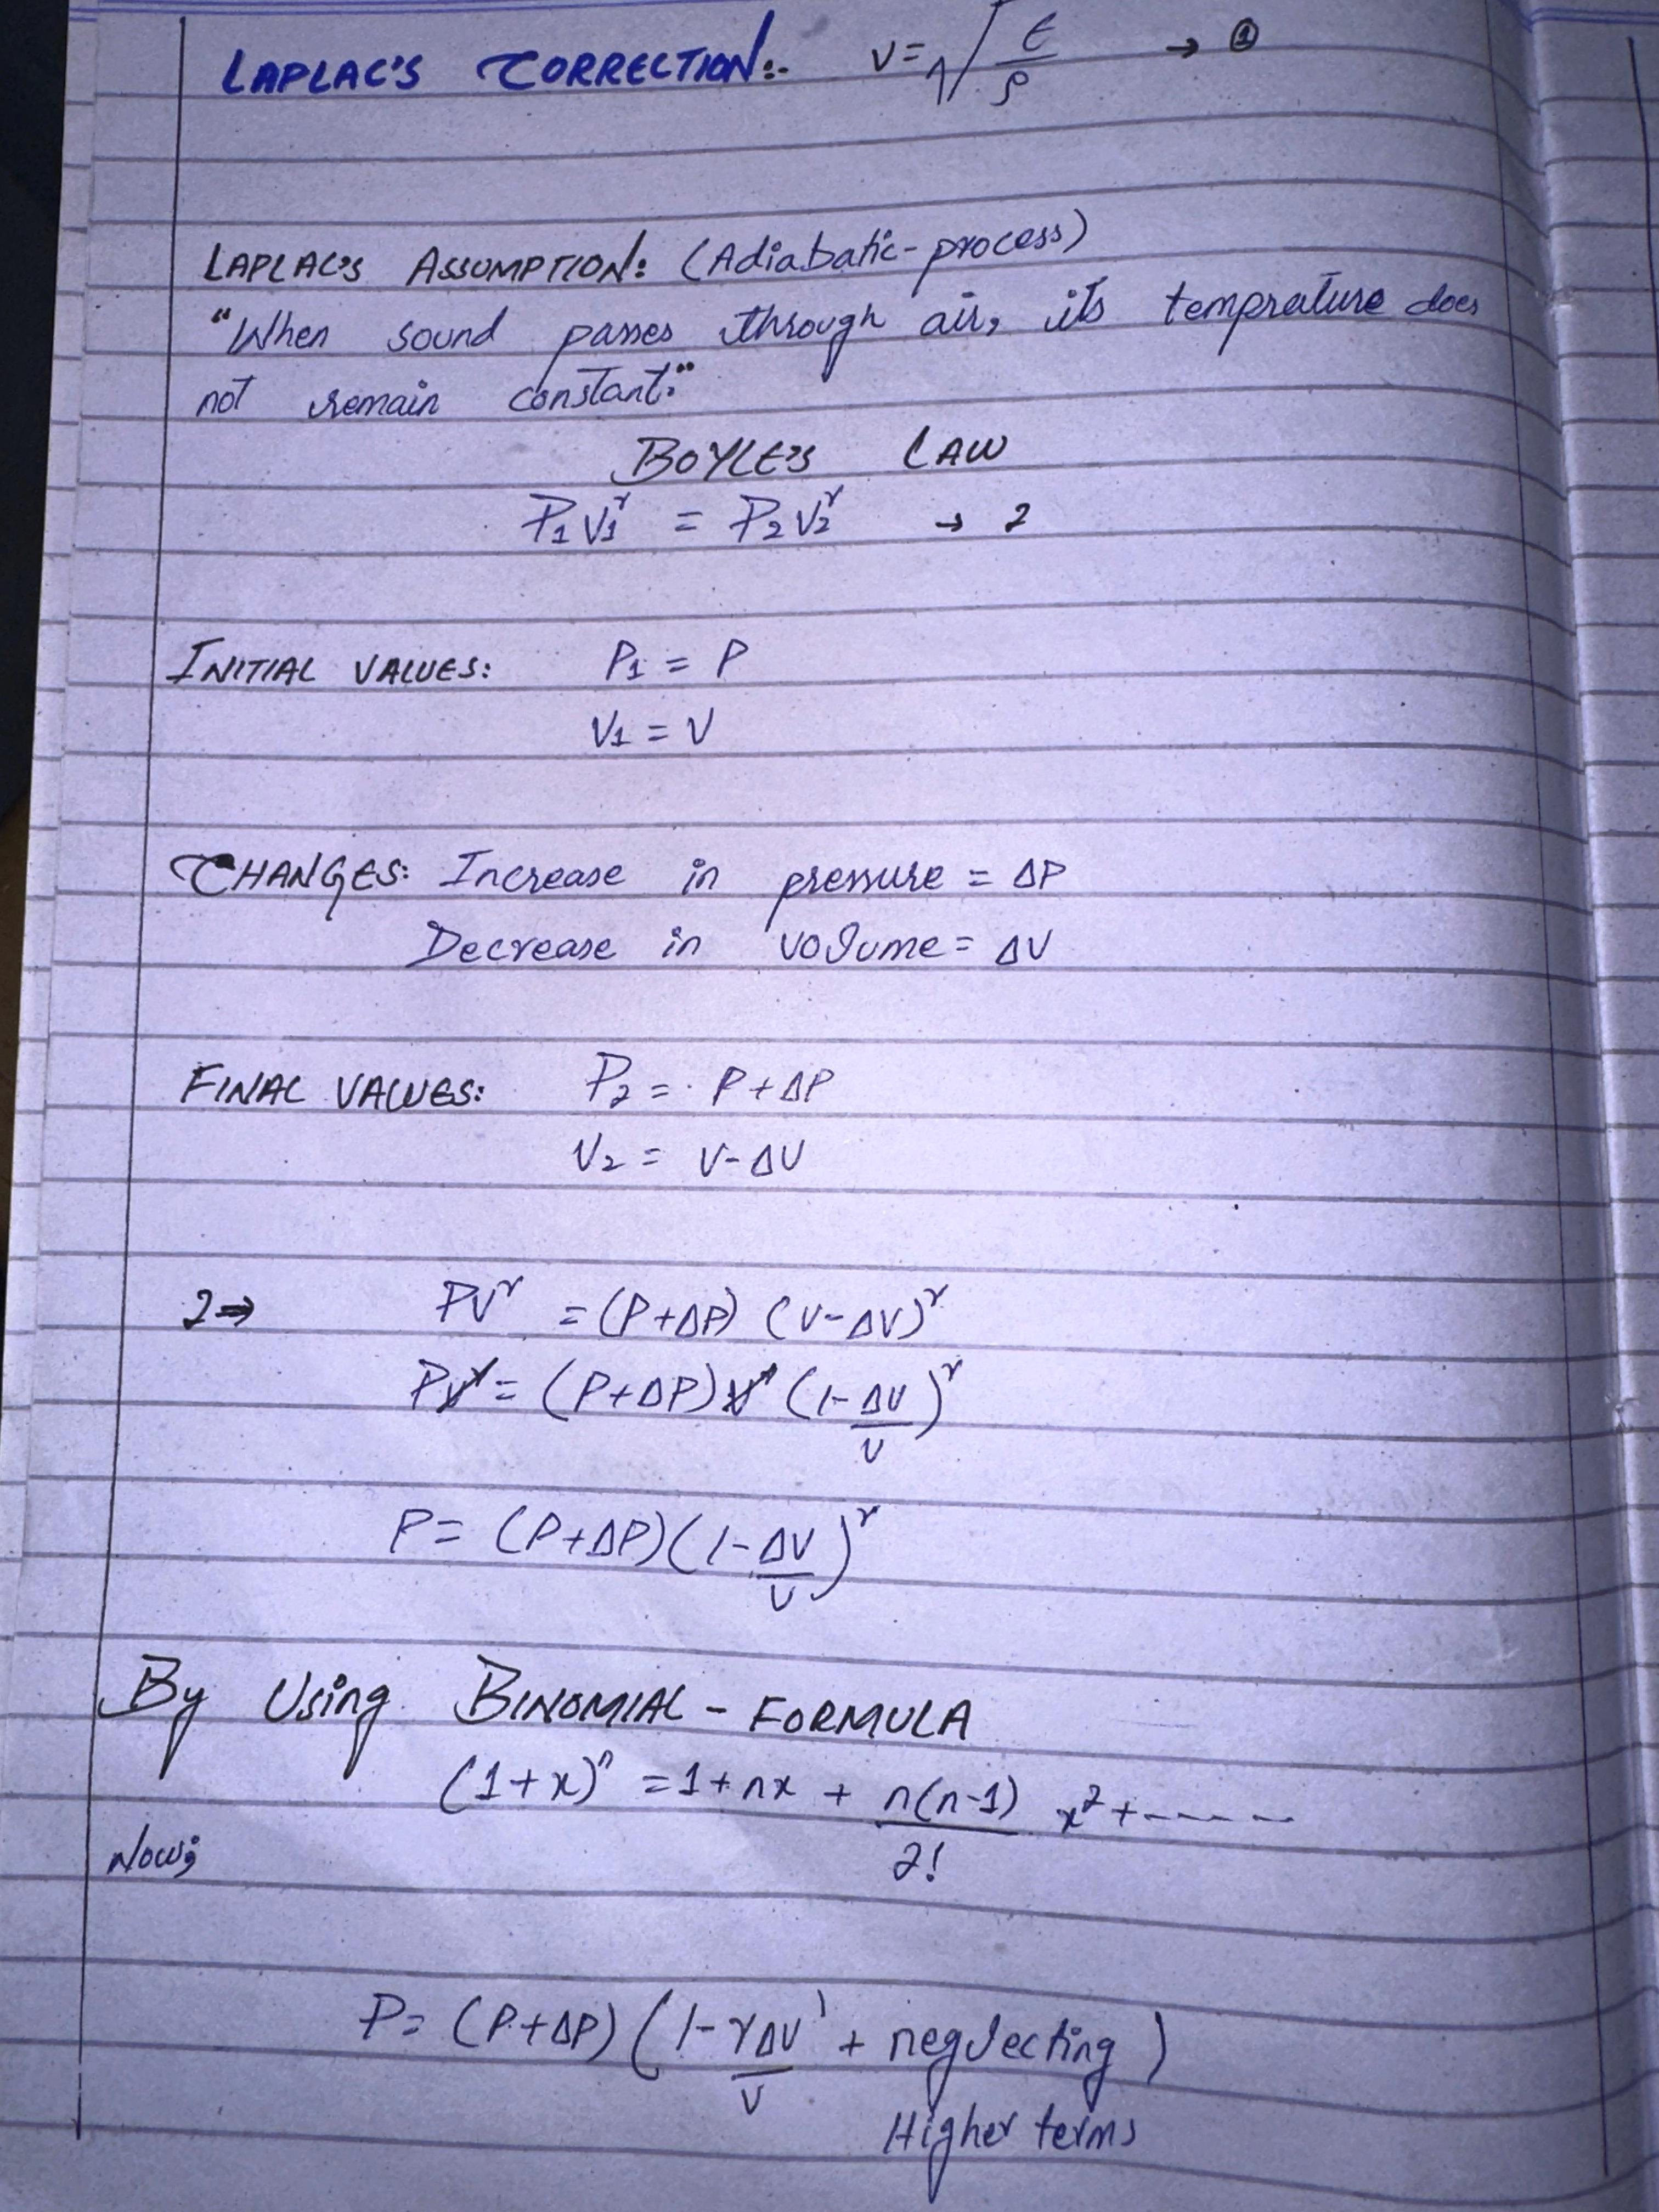 LAPLAC'S CORRECTION:- v = √(E/ρ) → ①
LAPLAC'S ASSUMPTION: (Adiabatic-process)
"When sound passes through air, its temprature does
not remain constant."
BOYLE'S LAW
P₁V₁^γ = P₂V₂^γ → 2
INITIAL VALUES: P₁ = P
V₁ = V
CHANGES: Increase in pressure = ΔP
Decrease in volume = ΔV
FINAL VALUES: P₂ = P + ΔP
V₂ = V - ΔV
2⇒ PV^γ = (P+ΔP) (V-ΔV)^γ
PV^γ = (P+ΔP) V^γ (1-ΔV/V)^γ
P = (P+ΔP)(1-ΔV/V)^γ
By Using BINOMIAL - FORMULA
(1+x)^n = 1 + nx + n(n-1)/2! x² + -----
Now;
P = (P+ΔP) (1-γΔV/V + neglecting)
Higher terms